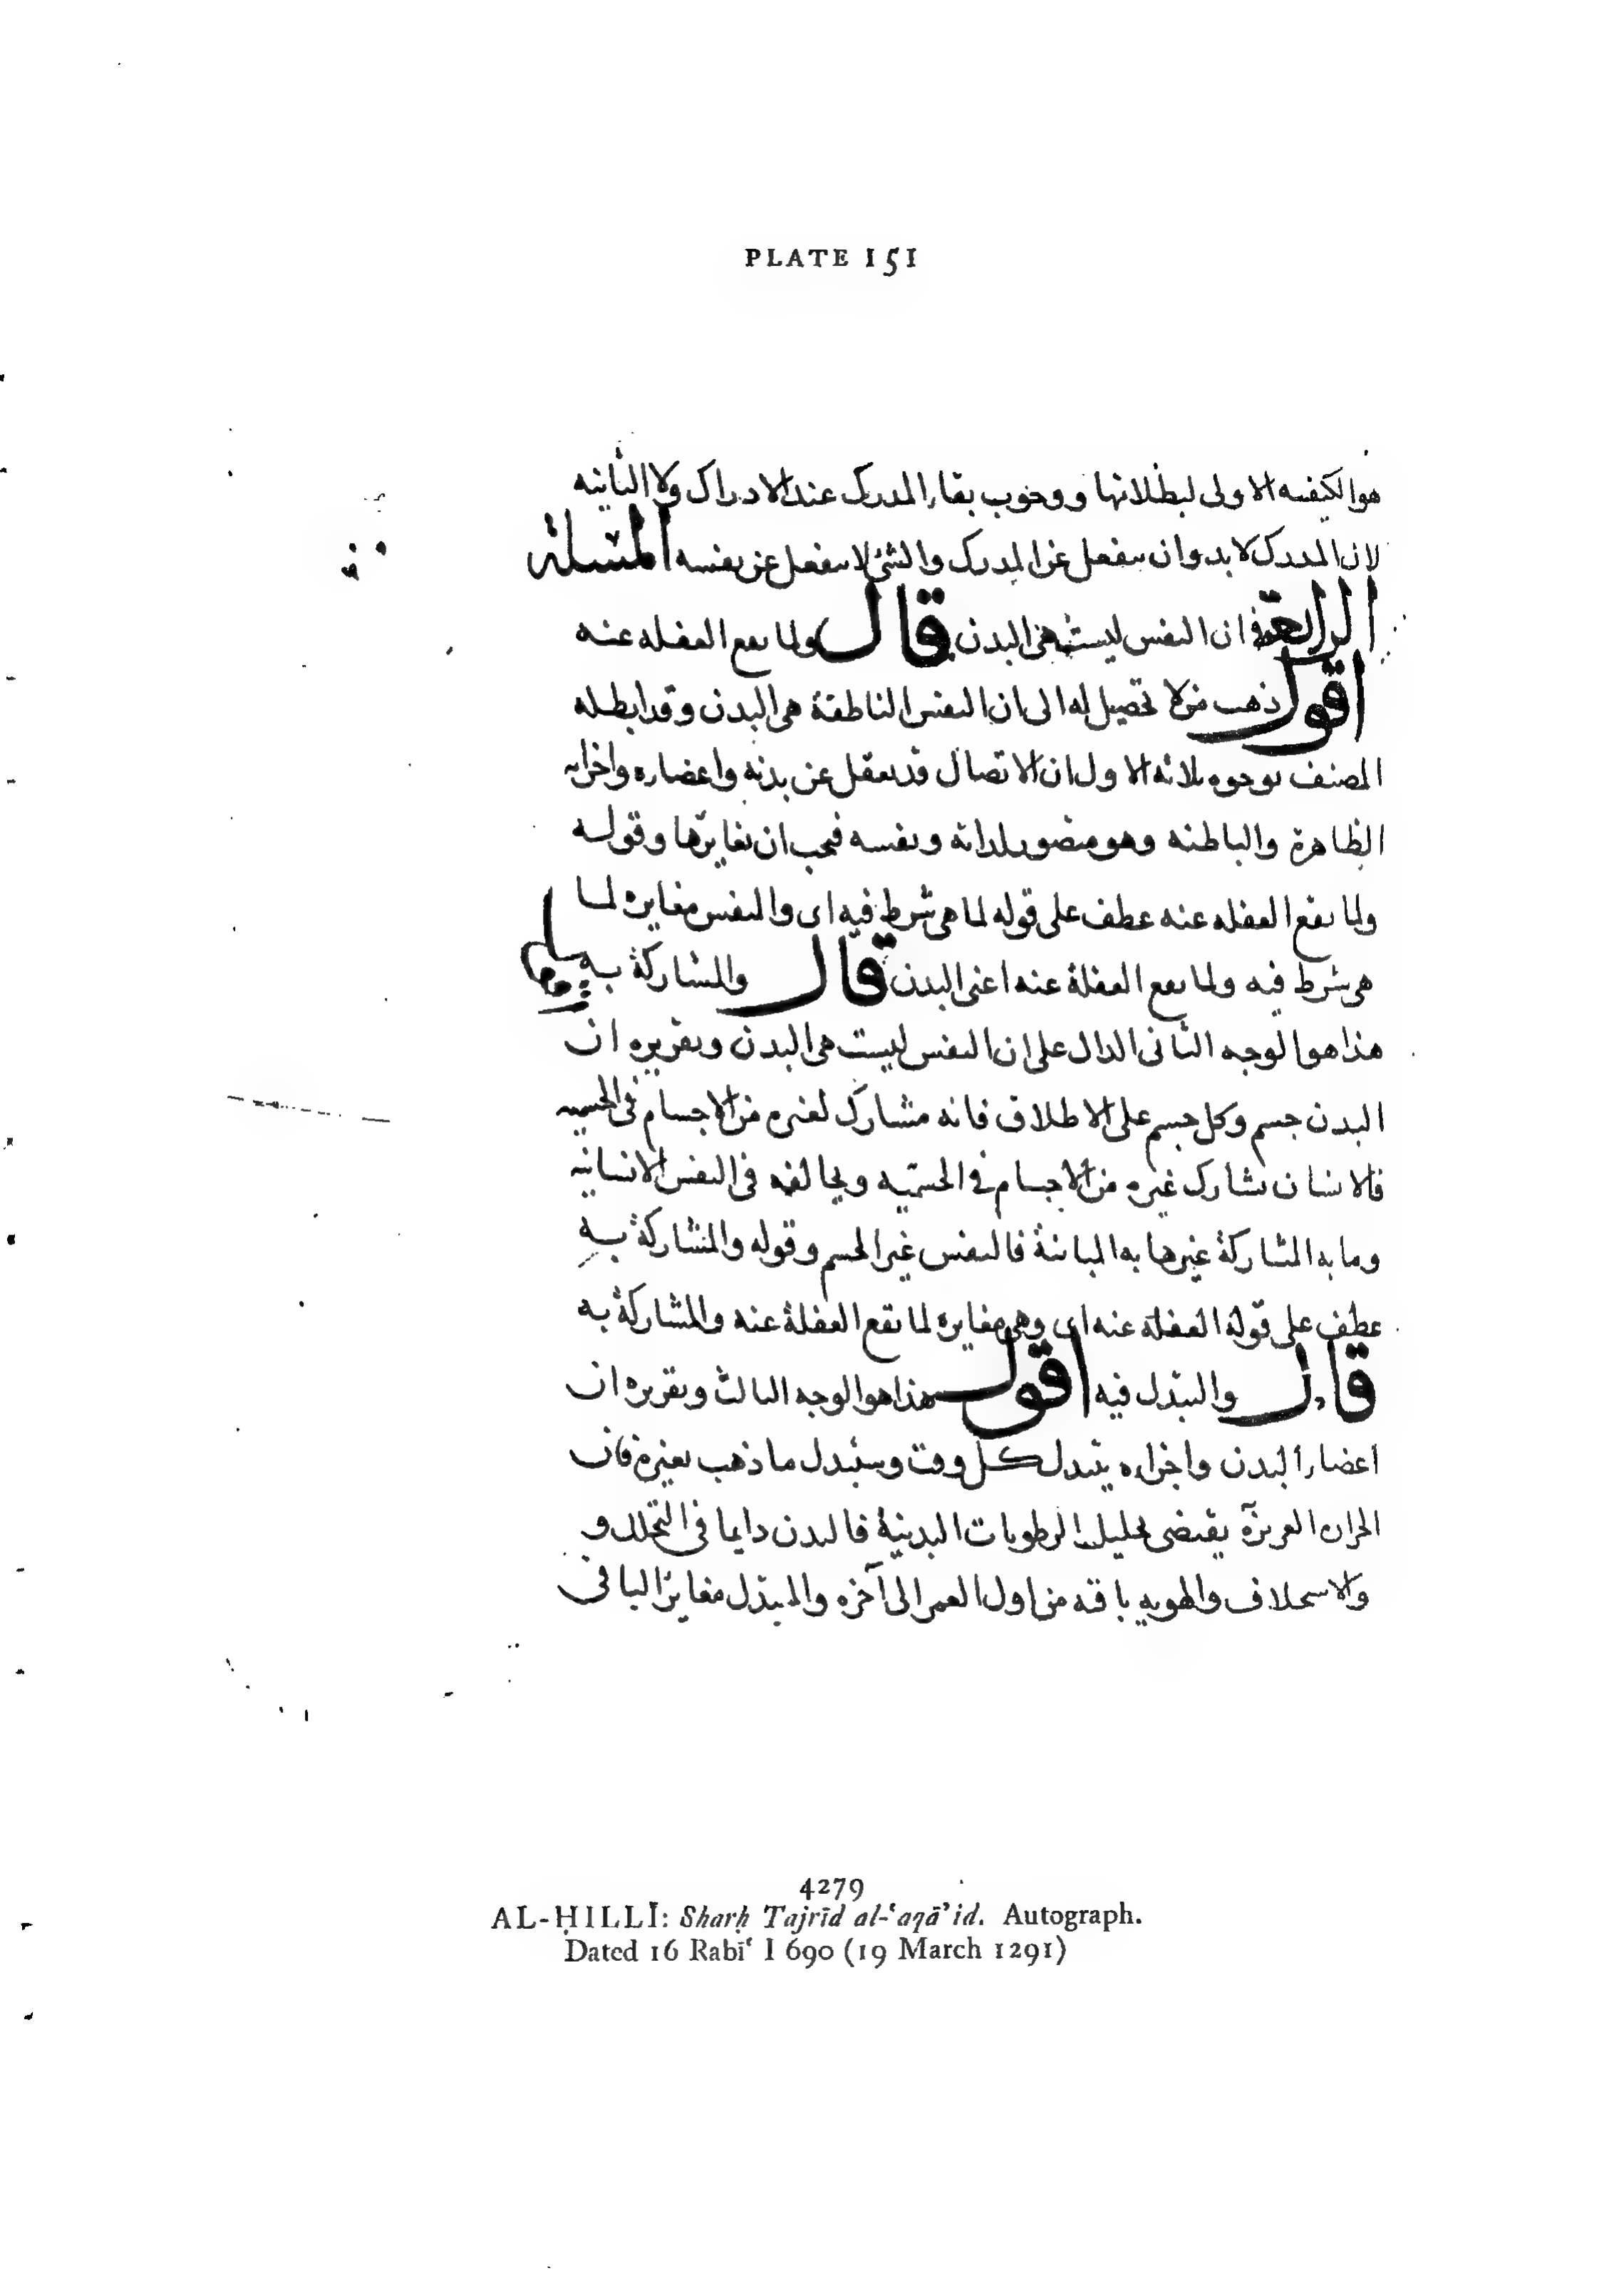 PLATE 151
هو الكيفية الاولى لبطلانها ووجوب بقاء المدرك عند الادراك ولا الثانية
لان المدرك لا بد وان ينفعل عن المدرك والشئ لا ينفعل عن نفسه المسئلة
الرابعة في ان النفس ليست هي البدن قال ولما يقع الغفلة عنه
اقول ذهب من لا تحصيل له الى ان النفس الناطقة هي البدن وقد ابطله
المصنف بوجوه ثلاثة الاول ان الانسان قد يغفل عن بدنه واعضاءه واجزائه
الظاهرة والباطنة وهو متصور لذاته ونفسه فيجب ان يغايرها وقوله
ولما يقع الغفلة عنه عطف على قوله لما هي شرط فيه اى والنفس مغايرة لما
هي شرط فيه ولما يقع الغفلة عنه اعني البدن قال والمشاركة به
هذا هو الوجه الثاني الدال على ان النفس ليست هي البدن وتقريره ان
البدن جسم وكل جسم على الاطلاق فانه مشارك لغيره من الاجسام في الجسمية
فالانسان يشارك غيره من الاجسام في الجسمية ويخالفه في النفس الانسانية
وما به المشاركة غير ما به المباينة فالنفس غير الجسم وقوله والمشاركة به
عطف على قوله الغفلة عنه اى وهي مغايرة لما يقع الغفلة عنه والمشاركة به
قال والتبدل فيه اقول هذا هو الوجه الثالث وتقريره ان
اعضاء البدن واجزاءه يتبدل كل وقت ويستبدل ما ذهب بغيره فان
الحرارة الغريزية يقتضى تحليل الرطوبات البدنية فالبدن دايما في التحلل و
والاستخلاف والهوية باقية من اول العمر الى آخره والمتبدل مغاير للباقي
4279
AL-ḤILLĪ: Sharḥ Tajrīd al-ʿaqāʾid. Autograph.
Dated 16 Rabīʿ I 690 (19 March 1291)